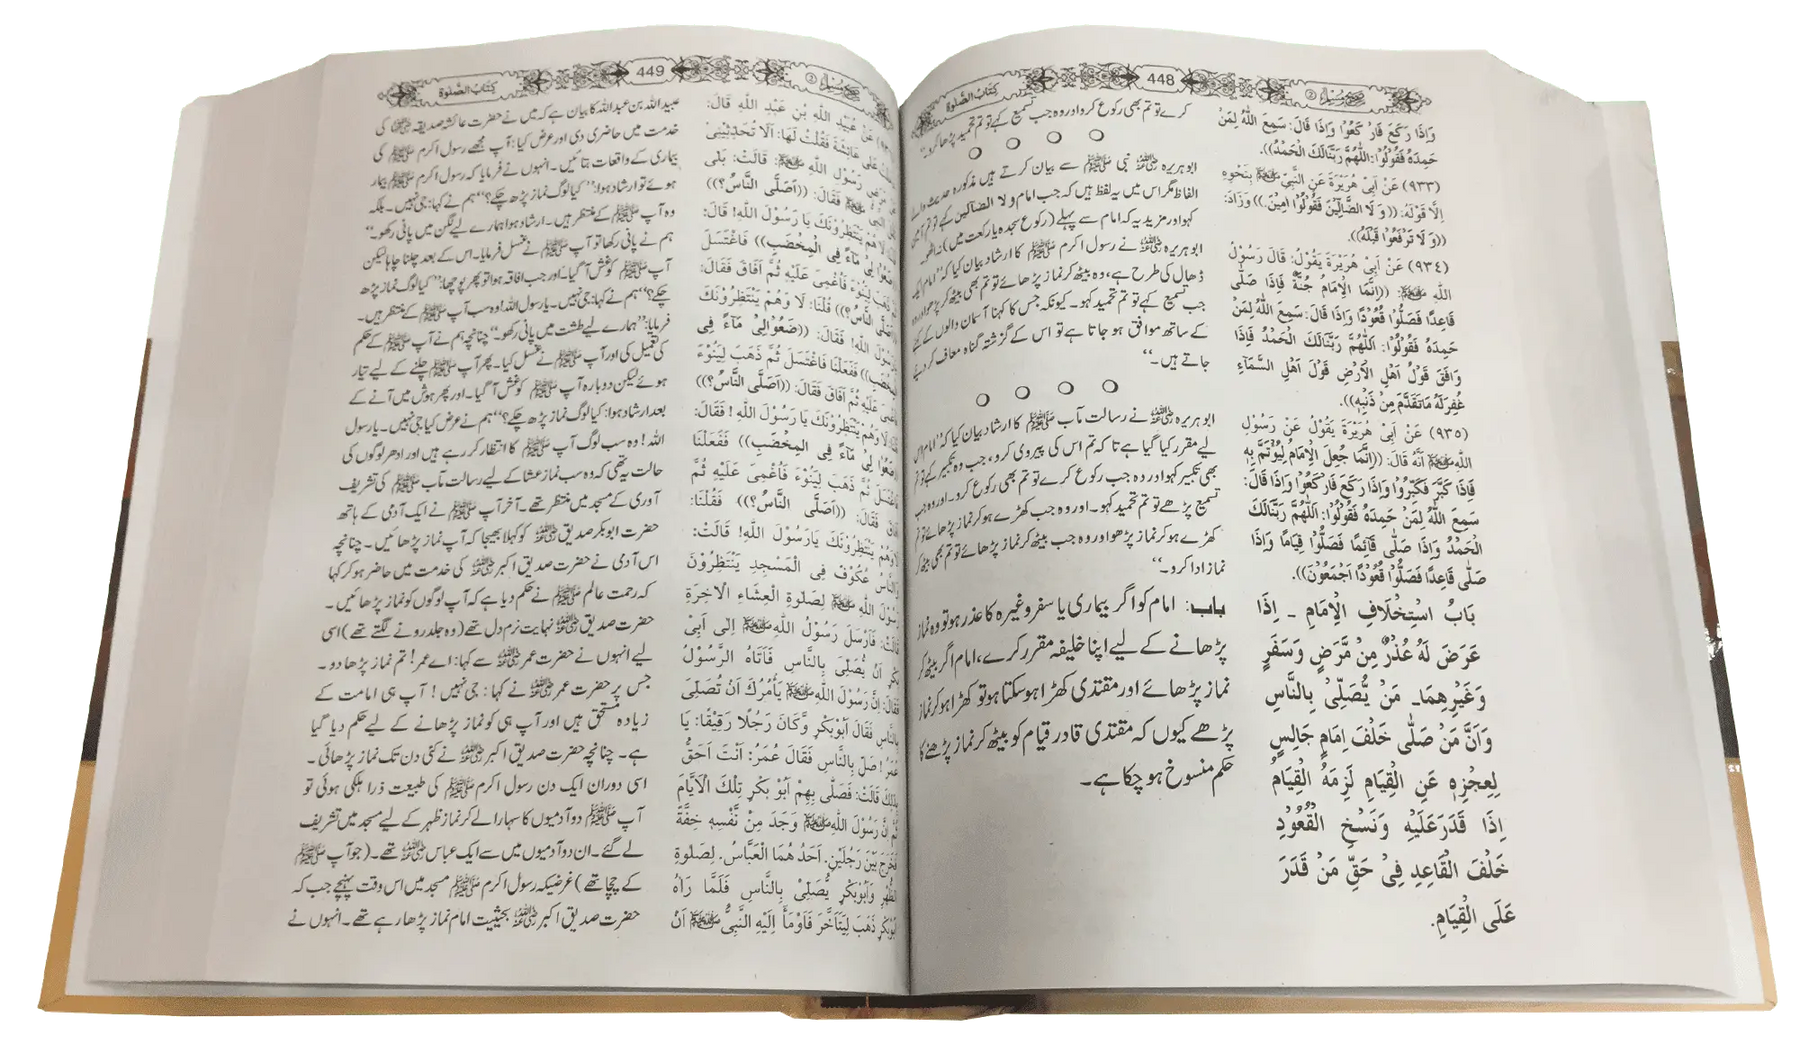 448
كِتَابُ الصَّلٰوة
وَاِذَا رَكَعَ فَارْكَعُوْا وَاِذَا قَالَ: سَمِعَ اللّٰهُ لِمَنْ
حَمِدَهُ فَقُوْلُوْا: اَللّٰهُمَّ رَبَّنَا لَكَ الْحَمْدُ)).
(٩٣٣) عَنْ اَبِيْ هُرَيْرَةَ عَنِ النَّبِيِّ ﷺ بِنَحْوِهِ
اِلَّا قَوْلَهُ: ((وَلَا الضَّالِّيْنَ فَقُوْلُوْا اٰمِيْنَ.)) وَزَادَ:
((وَلَا تَرْفَعُوْا قَبْلَهُ)).
(٩٣٤) عَنْ اَبِيْ هُرَيْرَةَ يَقُوْلُ: قَالَ رَسُوْلُ
اللّٰهِ ﷺ: ((اِنَّمَا الْاِمَامُ جُنَّةٌ فَاِذَا صَلّٰى
قَاعِدًا فَصَلُّوْا قُعُوْدًا وَاِذَا قَالَ: سَمِعَ اللّٰهُ لِمَنْ
حَمِدَهُ فَقُوْلُوْا: اَللّٰهُمَّ رَبَّنَا لَكَ الْحَمْدُ فَاِذَا
وَافَقَ قَوْلُ اَهْلِ الْاَرْضِ قَوْلَ اَهْلِ السَّمَآءِ
غُفِرَ لَهُ مَا تَقَدَّمَ مِنْ ذَنْبِهِ)).
(٩٣٥) عَنْ اَبِيْ هُرَيْرَةَ يَقُوْلُ عَنْ رَسُوْلِ
اللّٰهِ ﷺ اَنَّهُ قَالَ: ((اِنَّمَا جُعِلَ الْاِمَامُ لِيُؤْتَمَّ بِهِ
فَاِذَا كَبَّرَ فَكَبِّرُوْا وَاِذَا رَكَعَ فَارْكَعُوْا وَاِذَا قَالَ:
سَمِعَ اللّٰهُ لِمَنْ حَمِدَهُ فَقُوْلُوْا: اَللّٰهُمَّ رَبَّنَا لَكَ
الْحَمْدُ وَاِذَا صَلّٰى قَائِمًا فَصَلُّوْا قِيَامًا وَاِذَا
صَلّٰى قَاعِدًا فَصَلُّوْا قُعُوْدًا اَجْمَعُوْنَ)).
بَابُ اسْتِخْلَافِ الْاِمَامِ ـ اِذَا
عَرَضَ لَهُ عُذْرٌ مِنْ مَّرَضٍ وَسَفَرٍ
وَغَيْرِهِمَا۔ مَنْ يُّصَلِّيْ بِالنَّاسِ
وَاَنَّ مَنْ صَلّٰى خَلْفَ اِمَامٍ جَالِسٍ
لِعِجْزِهٖ عَنِ الْقِيَامِ لَزِمَهُ الْقِيَامُ
اِذَا قَدَرَ عَلَيْهِ وَنَسْخِ الْقُعُوْدِ
خَلْفَ الْقَاعِدِ فِيْ حَقِّ مَنْ قَدَرَ
عَلَى الْقِيَامِ.
کرے تو تم بھی رکوع کرو اور وہ جب تسمیع کہے تو تم تحمید پڑھا کرو۔“
ابوہریرہ رضی اللہ عنہ نبی ﷺ سے بیان کرتے ہیں مذکورہ حدیث والے
الفاظ مگر اس میں یہ لفظ ہیں کہ جب امام ولا الضالین کہے تو تم آمین
کہو اور مزید یہ کہ امام سے پہلے (رکوع سجدہ یا رکعت میں) نہ اٹھو۔
ابوہریرہ رضی اللہ عنہ نے رسول اکرم ﷺ کا ارشاد بیان کیا کہ ”امام ایک
ڈھال کی طرح ہے، وہ بیٹھ کر نماز پڑھائے تو تم بھی بیٹھ کر پڑھو اور وہ
جب تسمیع کہے تو تم تحمید کہو۔ کیونکہ جس کا کہنا آسمان والوں کے کہنے
کے ساتھ موافق ہو جاتا ہے تو اس کے گزشتہ گناہ معاف کر دیے
جاتے ہیں۔“
ابوہریرہ رضی اللہ عنہ نے رسالت مآب ﷺ کا ارشاد بیان کیا کہ ”امام اس
لیے مقرر کیا گیا ہے تا کہ تم اس کی پیروی کرو، جب وہ تکبیر کہے تو تم
بھی تکبیر کہو اور وہ جب رکوع کرے تو تم بھی رکوع کرو۔ اور وہ جب
تسمیع پڑھے تو تم تحمید کہو۔ اور وہ جب کھڑے ہو کر نماز پڑھائے تو تم
کھڑے ہو کر نماز پڑھو اور وہ جب بیٹھ کر نماز پڑھائے تو تم بھی بیٹھ کر
نماز ادا کرو۔“
باب: امام کو اگر بیماری یا سفر وغیرہ کا عذر ہو تو وہ نماز
پڑھانے کے لیے اپنا خلیفہ مقرر کرے، امام اگر بیٹھ کر
نماز پڑھائے اور مقتدی کھڑا ہو سکتا ہو تو کھڑا ہو کر نماز
پڑھے کیوں کہ مقتدی قادر قیام کو بیٹھ کر نماز پڑھنے کا
حکم منسوخ ہو چکا ہے۔
449
كِتَابُ الصَّلٰوة
عَنْ عُبَيْدِ اللّٰهِ بْنِ عَبْدِ اللّٰهِ قَالَ:
عَلٰى عَائِشَةَ فَقُلْتُ لَهَا: اَلَا تُحَدِّثِيْنِيْ
رَسُوْلِ اللّٰهِ ﷺ قَالَتْ: بَلٰى
ﷺ فَقَالَ: ((اَصَلَّى النَّاسُ؟))
لَا هُمْ يَنْتَظِرُوْنَكَ يَا رَسُوْلَ اللّٰهِ! قَالَ:
لِيْ مَآءً فِي الْمِخْضَبِ)) فَاغْتَسَلَ
ذَهَبَ لِيَنُوْءَ فَاُغْمِيَ عَلَيْهِ ثُمَّ اَفَاقَ فَقَالَ:
((اَصَلَّى النَّاسُ؟)) قُلْنَا: لَا وَهُمْ يَنْتَظِرُوْنَكَ
رَسُوْلَ اللّٰهِ! فَقَالَ: ((ضَعُوْا لِيْ مَآءً فِي
الْمِخْضَبِ)) فَفَعَلْنَا فَاغْتَسَلَ ثُمَّ ذَهَبَ لِيَنُوْءَ
عَلَيْهِ ثُمَّ اَفَاقَ فَقَالَ: ((اَصَلَّى النَّاسُ؟))
لَا وَهُمْ يَنْتَظِرُوْنَكَ يَا رَسُوْلَ اللّٰهِ! فَقَالَ:
لِيْ مَآءً فِي الْمِخْضَبِ)) فَفَعَلْنَا
ثُمَّ ذَهَبَ لِيَنُوْءَ فَاُغْمِيَ عَلَيْهِ ثُمَّ
فَقَالَ: ((اَصَلَّى النَّاسُ؟)) فَقُلْنَا:
لَا وَهُمْ يَنْتَظِرُوْنَكَ يَا رَسُوْلَ اللّٰهِ! قَالَتْ:
وَالنَّاسُ عُكُوْفٌ فِي الْمَسْجِدِ يَنْتَظِرُوْنَ
رَسُوْلَ اللّٰهِ ﷺ لِصَلٰوةِ الْعِشَاءِ الْاٰخِرَةِ
قَالَتْ: فَاَرْسَلَ رَسُوْلُ اللّٰهِ ﷺ اِلٰى اَبِيْ
بَكْرٍ اَنْ يُّصَلِّيَ بِالنَّاسِ فَاَتَاهُ الرَّسُوْلُ
فَقَالَ: اِنَّ رَسُوْلَ اللّٰهِ ﷺ يَاْمُرُكَ اَنْ تُصَلِّيَ
بِالنَّاسِ فَقَالَ اَبُوْبَكْرٍ وَّكَانَ رَجُلًا رَقِيْقًا: يَا
عُمَرُ! صَلِّ بِالنَّاسِ فَقَالَ عُمَرُ: اَنْتَ اَحَقُّ
بِذٰلِكَ قَالَتْ: فَصَلّٰى بِهِمْ اَبُوْ بَكْرٍ تِلْكَ الْاَيَّامَ
ثُمَّ اِنَّ رَسُوْلَ اللّٰهِ ﷺ وَجَدَ مِنْ نَّفْسِهٖ خِفَّةً
فَخَرَجَ بَيْنَ رَجُلَيْنِ. اَحَدُهُمَا الْعَبَّاسُ. لِصَلٰوةِ
الظُّهْرِ وَاَبُوْبَكْرٍ يُّصَلِّيْ بِالنَّاسِ فَلَمَّا رَاٰهُ
اَبُوْبَكْرٍ ذَهَبَ لِيَتَاَخَّرَ فَاَوْمَاَ اِلَيْهِ النَّبِيُّ ﷺ اَنْ
عبید اللہ بن عبد اللہ کا بیان ہے کہ میں نے حضرت عائشہ صدیقہ رضی اللہ عنہا کی
خدمت میں حاضری دی اور عرض کیا: آپ مجھے رسول اکرم ﷺ کی
بیماری کے واقعات بتائیں۔ انہوں نے فرمایا کہ رسول اکرم ﷺ بیمار
ہوئے تو ارشاد ہوا: ”کیا لوگ نماز پڑھ چکے؟“ ہم نے کہا: جی نہیں۔ بلکہ
وہ آپ ﷺ کے منتظر ہیں۔ ارشاد ہوا ہمارے لیے لگن میں پانی رکھو۔“
ہم نے پانی رکھا تو آپ ﷺ نے غسل فرمایا۔ اس کے بعد چلنا چاہا لیکن
آپ ﷺ کو غش آ گیا۔ اور جب افاقہ ہوا تو پھر پوچھا: ”کیا لوگ نماز پڑھ
چکے؟“ ہم نے کہا: جی نہیں۔ یا رسول اللہ! وہ سب آپ ﷺ کے منتظر ہیں۔
فرمایا: ”ہمارے لیے طشت میں پانی رکھو۔“ چنانچہ ہم نے آپ ﷺ کے حکم
کی تعمیل کی اور آپ ﷺ نے غسل کیا۔ پھر آپ ﷺ چلنے کے لیے تیار
ہوئے لیکن دوبارہ آپ ﷺ کو غش آ گیا۔ اور پھر ہوش میں آنے کے
بعد ارشاد ہوا: کیا لوگ نماز پڑھ چکے؟“ ہم نے عرض کیا جی نہیں۔ یا رسول
اللہ! وہ سب لوگ آپ ﷺ کا انتظار کر رہے ہیں اور ادھر لوگوں کی
حالت یہ تھی کہ وہ سب نماز عشا کے لیے رسالت مآب ﷺ کی تشریف
آوری کے مسجد میں منتظر تھے۔ آخر آپ ﷺ نے ایک آدمی کے ہاتھ
حضرت ابوبکر صدیق رضی اللہ عنہ کو کہلا بھیجا کہ آپ نماز پڑھائیں۔ چنانچہ
اس آدمی نے حضرت صدیق اکبر رضی اللہ عنہ کی خدمت میں حاضر ہو کر کہا
کہ رحمت عالم ﷺ نے حکم دیا ہے کہ آپ لوگوں کو نماز پڑھائیں۔
حضرت صدیق رضی اللہ عنہ نہایت نرم دل تھے (وہ جلد رونے لگتے تھے) اسی
لیے انہوں نے حضرت عمر رضی اللہ عنہ سے کہا: اے عمر! تم نماز پڑھا دو۔
جس پر حضرت عمر رضی اللہ عنہ نے کہا: جی نہیں! آپ ہی امامت کے
زیادہ مستحق ہیں اور آپ ہی کو نماز پڑھانے کے لیے حکم دیا گیا
ہے۔ چنانچہ حضرت صدیق اکبر رضی اللہ عنہ نے کئی دن تک نماز پڑھائی۔
اسی دوران ایک دن رسول اکرم ﷺ کی طبیعت ذرا ہلکی ہوئی تو
آپ ﷺ دو آدمیوں کا سہارا لے کر نماز ظہر کے لیے مسجد میں تشریف
لے گئے۔ ان دو آدمیوں میں سے ایک عباس رضی اللہ عنہ تھے۔ (جو آپ ﷺ
کے چچا تھے) غرضیکہ رسول اکرم ﷺ مسجد میں اس وقت پہنچے جب کہ
حضرت صدیق اکبر رضی اللہ عنہ بحیثیت امام نماز پڑھا رہے تھے۔ انہوں نے